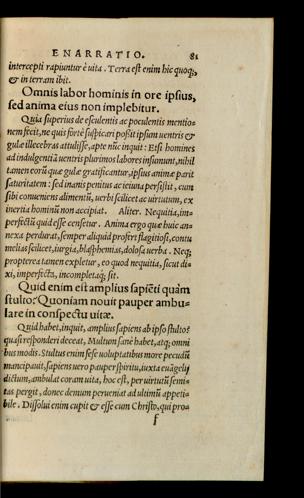 ENARRATIO. 81
intercepti rapiuntur è uita. Terra est enim hic quoq;,
& in terram ibit.
Omnis labor hominis in ore ipsius,
sed anima eius non implebitur.
Quia superius de esculentis ac poculentis mentio-
nem fecit, ne quis fortè suspicari possit ipsum uentris &
gulæ illecebras attulisse, aptè nũc inquit: Etsi homines
ad indulgentiã uentris plurimos labores insumunt, nihil
tamen eorũ quæ gulæ gratificantur, ipsius animæ parit
saturitatem: sed inanis penitus ac ieiuna persistit, cum
sibi conueniens alimentũ, uerbi scilicet ac uirtutum, ex
inertia hominũ non accipiat. Aliter. Nequitia, im-
perfectũ quid esse censetur. Anima ergo quæ huic an-
nexa perdurat, semper aliquid profert flagitiosũ, contu
melias scilicet, iurgia, blasphemias, dolosa uerba. Neq;
propterea tamen expletur, eo quod nequitia, sicut di-
xi, imperfecta, incompletaq́; sit.
Quid enim est amplius sapiẽti quàm
stulto? Quoniam nouit pauper ambu-
lare in conspectu uitæ.
Quid habet, inquit, amplius sapiens ab ipso stulto?
quasi responderi deceat, Multum sanè habet, atq; omni
bus modis. Stultus enim sese uoluptatibus more pecudũ
mancipauit, sapiens uero pauper spiritu, iuxta euãgelij
dictum, ambulat coram uita, hoc est, per uirtutũ semi-
tas pergit, donec demum perueniat ad ultimũ appeti-
bile. Dissolui enim cupit & esse cum Christo, qui pro-
f